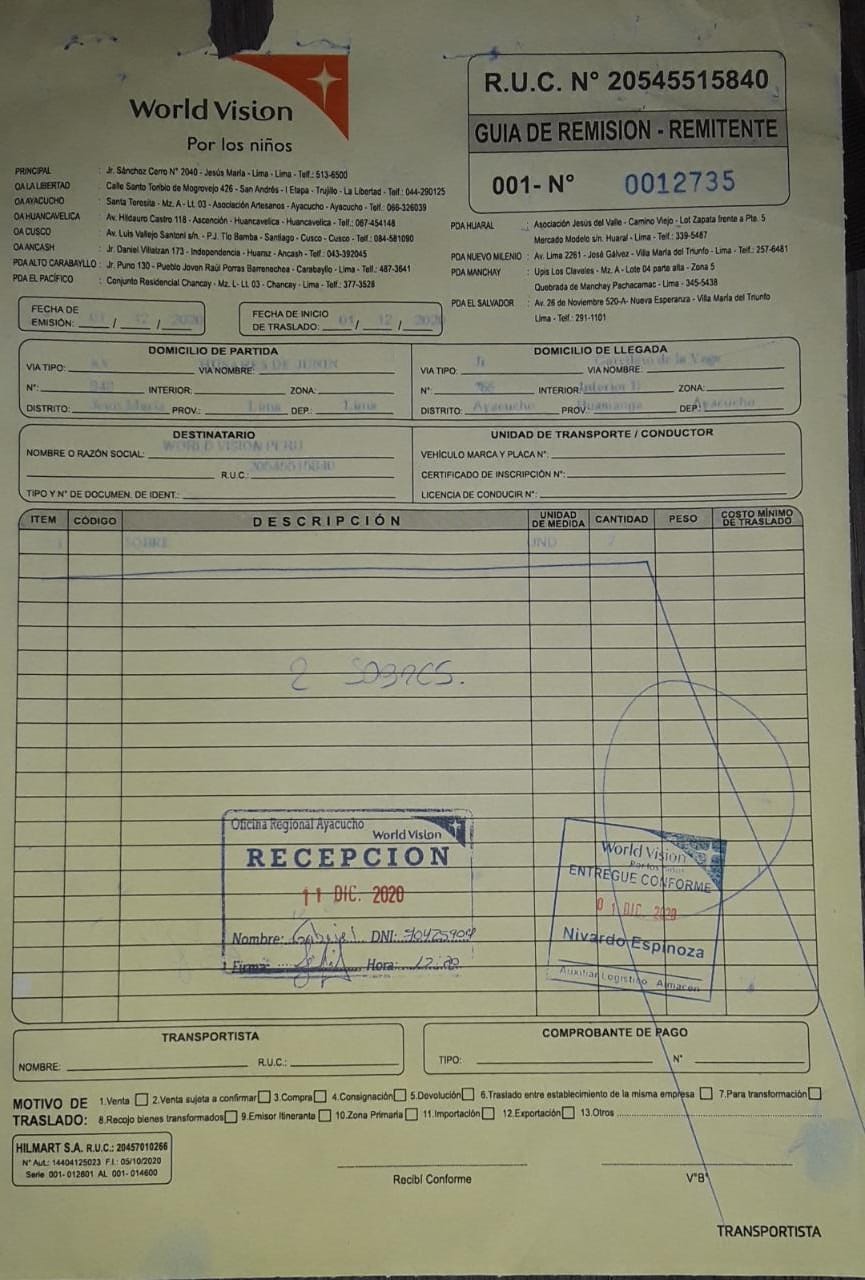 World Vision
Por los niños
R.U.C. N° 20545515840
GUIA DE REMISION - REMITENTE
001- N° 0012735
PRINCIPAL : Jr. Sánchez Cerro N° 2040 - Jesús María - Lima - Lima - Telf.: 513-6500
OA LA LIBERTAD : Calle Santo Toribio de Mogrovejo 426 - San Andrés - I Etapa - Trujillo - La Libertad - Telf.: 044-290125
OA AYACUCHO : Santa Teresita - Mz. A - Lt. 03 - Asociación Artesanos - Ayacucho - Ayacucho - Telf.: 066-326039
OA HUANCAVELICA : Av. Hildauro Castro 118 - Ascención - Huancavelica - Huancavelica - Telf.: 067-454148
OA CUSCO : Av. Luis Vallejo Santoni s/n. - P.J. Tío Bamba - Santiago - Cusco - Cusco - Telf.: 084-581090
OA ANCASH : Jr. Daniel Villaizan 173 - Independencia - Huaraz - Ancash - Telf.: 043-392045
PDA ALTO CARABAYLLO : Jr. Puno 130 - Pueblo Joven Raúl Porras Barrenechea - Carabayllo - Lima - Telf.: 487-3641
PDA EL PACÍFICO : Conjunto Residencial Chancay - Mz. L- Lt. 03 - Chancay - Lima - Telf.: 377-3528
PDA HUARAL : Asociación Jesús del Valle - Camino Viejo - Lot Zapata frente a Pte. 5
Mercado Modelo s/n. Huaral - Lima - Telf.: 339-5487
PDA NUEVO MILENIO : Av. Lima 2261 - José Gálvez - Villa María del Triunfo - Lima - Telf.: 257-6481
PDA MANCHAY : Upis Los Claveles - Mz. A - Lote 04 parte alta - Zona 5
Quebrada de Manchay Pachacamac - Lima - 345-5438
PDA EL SALVADOR : Av. 26 de Noviembre 520-A- Nueva Esperanza - Villa María del Triunfo
Lima - Telf.: 291-1101
FECHA DE
EMISIÓN: 01 / 12 / 2020
FECHA DE INICIO
DE TRASLADO: 01 / 12 / 2020
DOMICILIO DE PARTIDA
VIA TIPO: AV VIA NOMBRE: HUSARES DE JUNIN
N°: INTERIOR: ZONA:
DISTRITO: Jesus Maria PROV.: Lima DEP.: Lima
DOMICILIO DE LLEGADA
VIA TIPO: Jr VIA NOMBRE: Garcilazo de la Vega
N°: INTERIOR: ZONA:
DISTRITO: Ayacucho PROV. Huamanga DEP. Ayacucho
DESTINATARIO
NOMBRE O RAZÓN SOCIAL: WORLD VISION PERU
R.U.C.: 20545515840
TIPO Y N° DE DOCUMEN. DE IDENT.:
UNIDAD DE TRANSPORTE / CONDUCTOR
VEHÍCULO MARCA Y PLACA N°:
CERTIFICADO DE INSCRIPCIÓN N°:
LICENCIA DE CONDUCIR N°:
ITEM CÓDIGO DESCRIPCIÓN UNIDAD DE MEDIDA CANTIDAD PESO COSTO MÍNIMO DE TRASLADO
SOBRE UND
2 SOBRES.
Oficina Regional Ayacucho
World Vision
RECEPCION
11 DIC. 2020
Nombre: Gabriel DNI:
Firma: Hora:
World Vision
Por los niños
ENTREGUE CONFORME
01 DIC. 2020
Nivardo Espinoza
Auxiliar Logistico Almacen
TRANSPORTISTA
NOMBRE: R.U.C.:
COMPROBANTE DE PAGO
TIPO: N°
MOTIVO DE TRASLADO: 1.Venta 2.Venta sujeta a confirmar 3.Compra 4.Consignación 5.Devolución 6.Traslado entre establecimiento de la misma empresa 7.Para transformación
8.Recojo bienes transformados 9.Emisor Itinerante 10.Zona Primaria 11.Importación 12.Exportación 13.Otros
HILMART S.A. R.U.C.: 20457010266
N° Aut.: 14404125023 F.I.: 05/10/2020
Serie 001- 012601 AL 001- 014600
Recibí Conforme
V°B°
TRANSPORTISTA